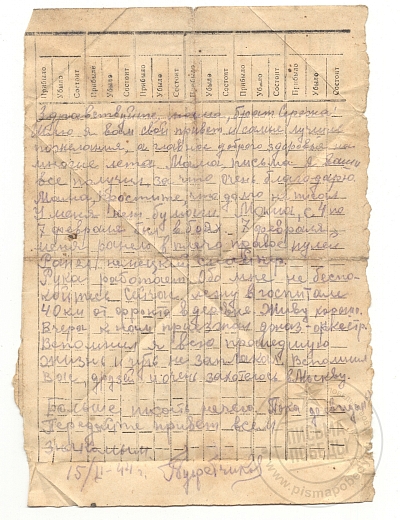 Прибыло Убыло Состоит Прибыло Убыло Состоит Прибыло Убыло Состоит Прибыло Убыло Состоит Прибыло Убыло Состоит Прибыло Убыло Состоит
Здравствуйте мама, брат Сережа.
Шлю я вам свой привет и самые лучшие
пожелания, а главное доброго здоровья на
многие лета. Мама, письма я ваши
все получил за что очень благодарю.
Мама, простите, что долго не писал
У меня нет бумаги. Мама, с 4 по
7 февраля был в боях. 7 февраля
меня ранело в плечо правое пулей
Ранел немецкий снайпер.
Рука работает. Обо мне не беспо-
койтесь. Сейчас лежу в госпитале
40 км от фронта в деревне. Живу хорошо.
Вчера к нам приезжал джаз-оркестр.
Вспомнил я всю прошедшую
жизнь и чуть не заплакал. Вспомнил
всех друзей и очень захотелось в Москву.
Больше писать нечего. Пока до свиданья
Передайте привет всем
знакомым
15/II-44 г.
ПИСЬМА ПОБЕДЫ
www.pismapobe